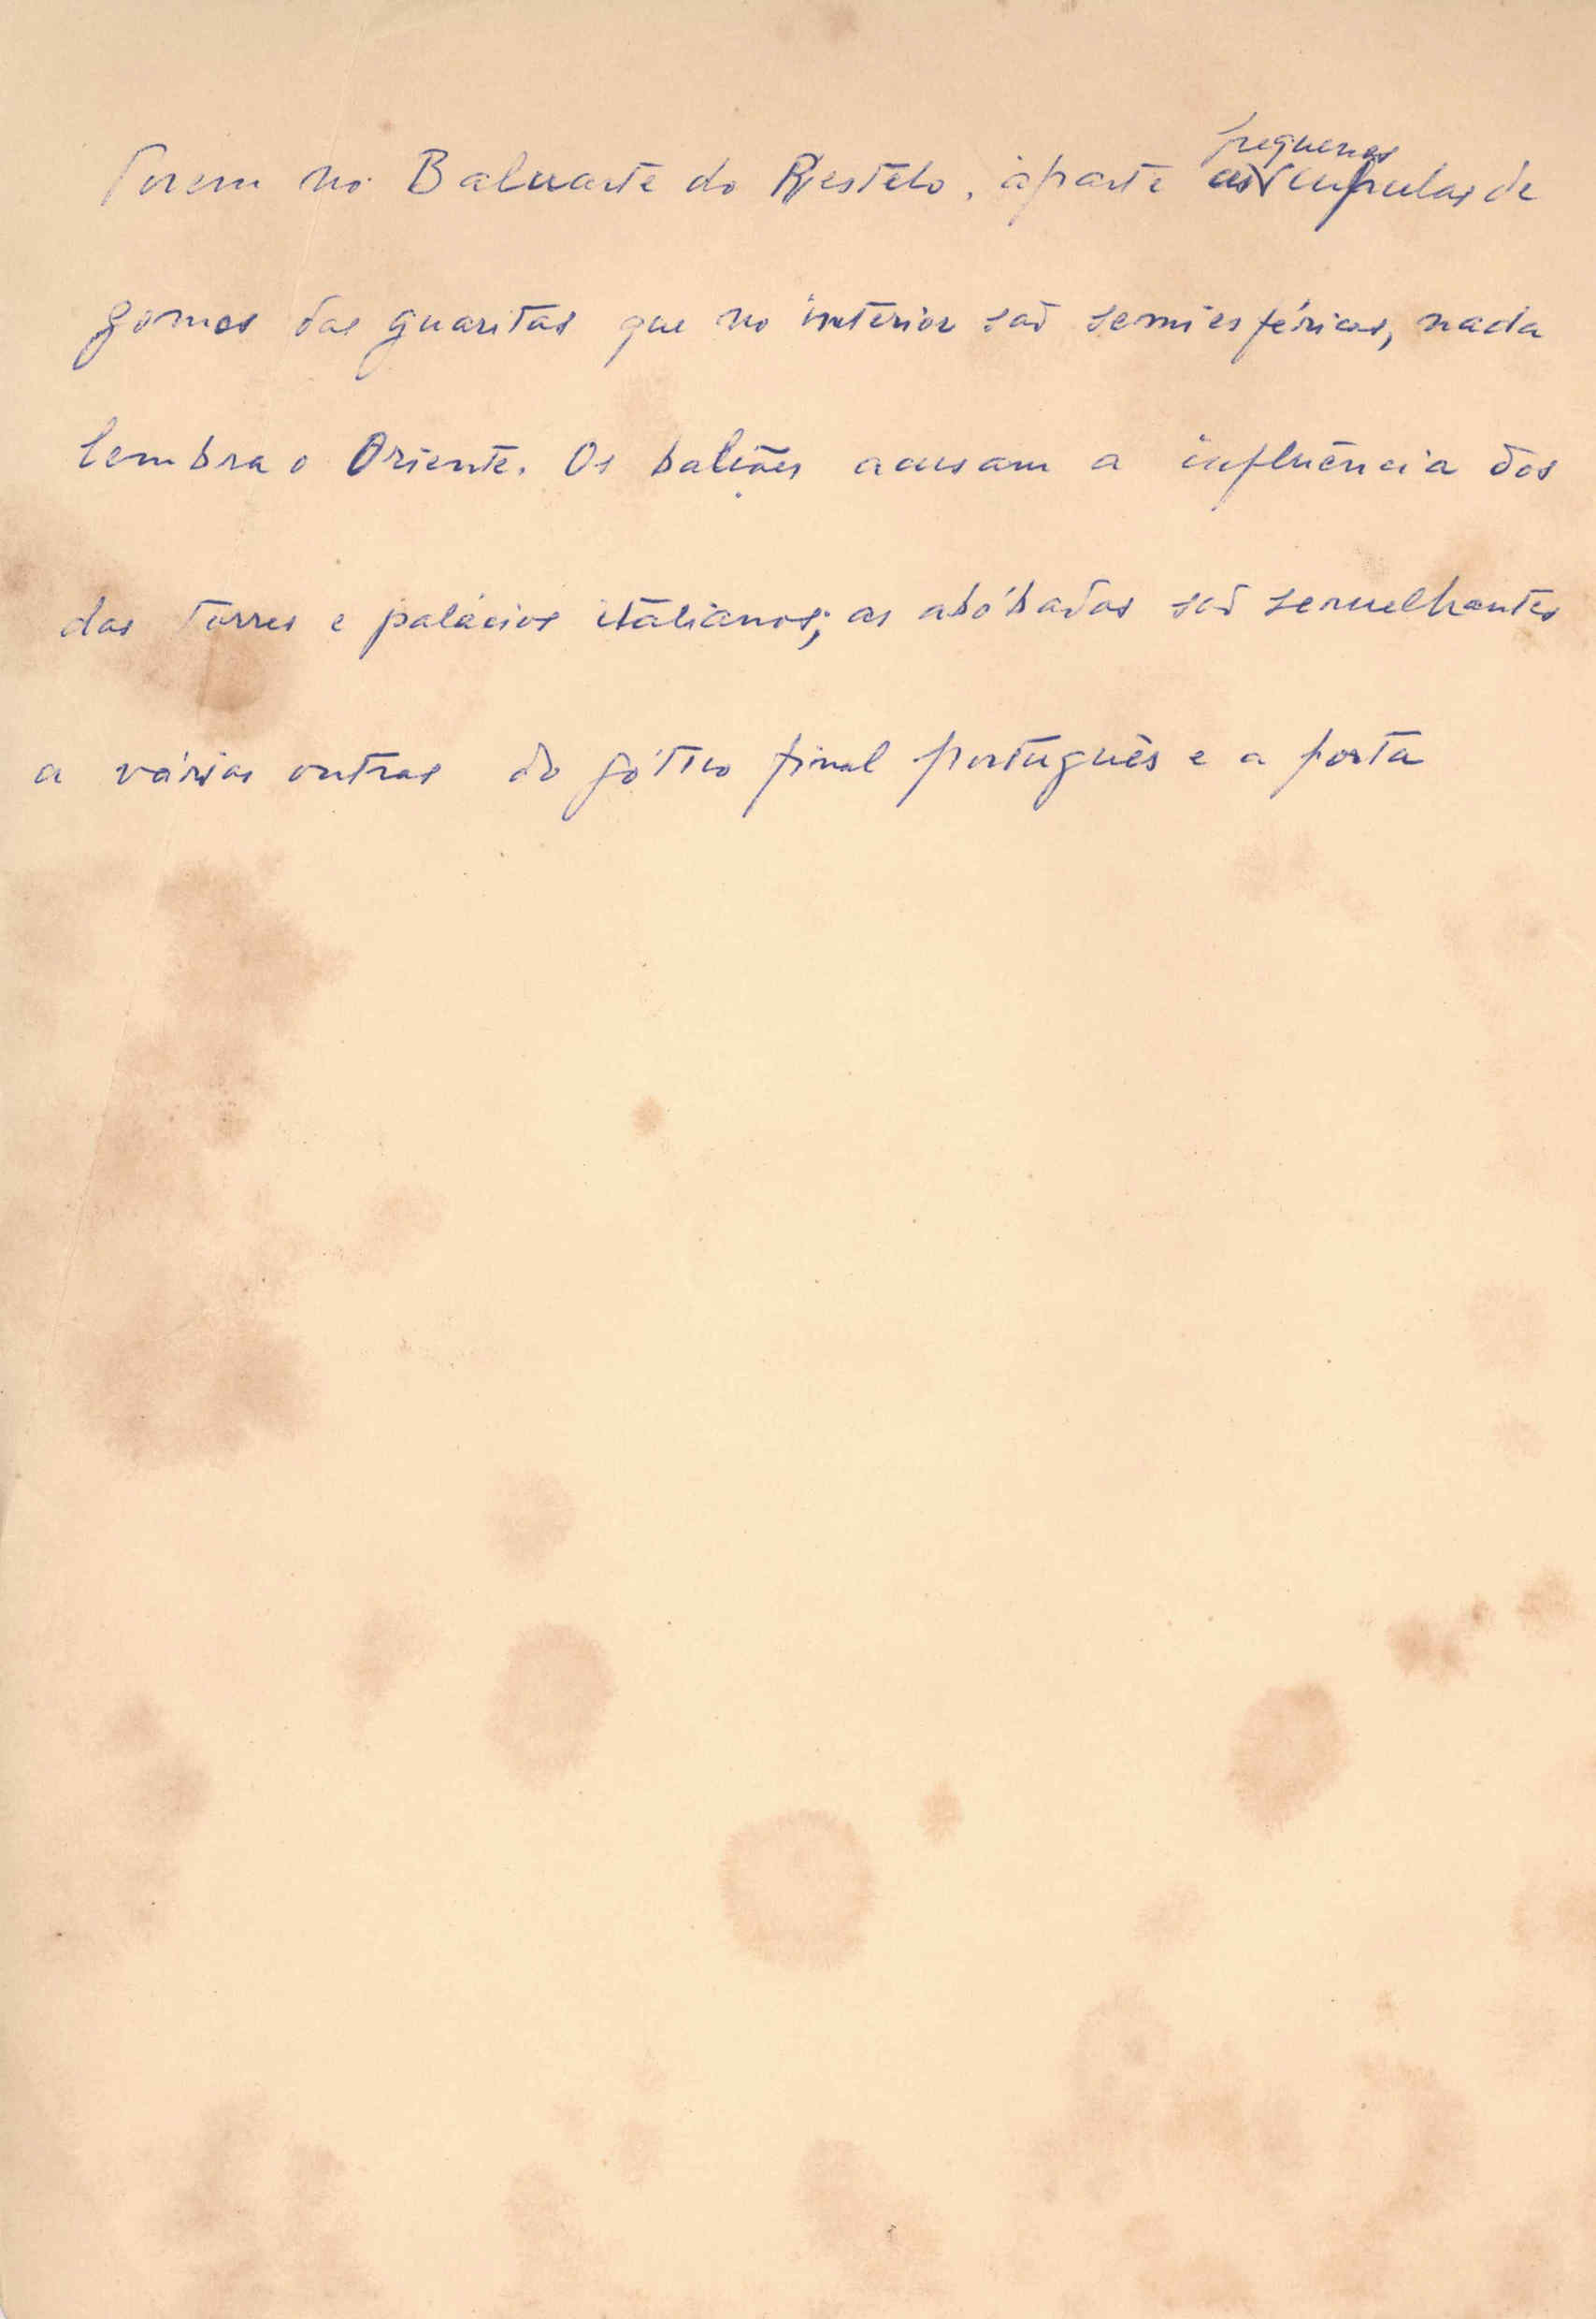 Porem no Baluarte do Restelo, àparte as pequenas cupulas de
gomos das guaritas que no interior são semiesféricas, nada
lembra o Oriente. Os balcões acusam a influência dos
das torres e palácios italianos; as abóbadas são semelhantes
a várias outras do gótico final português e a porta